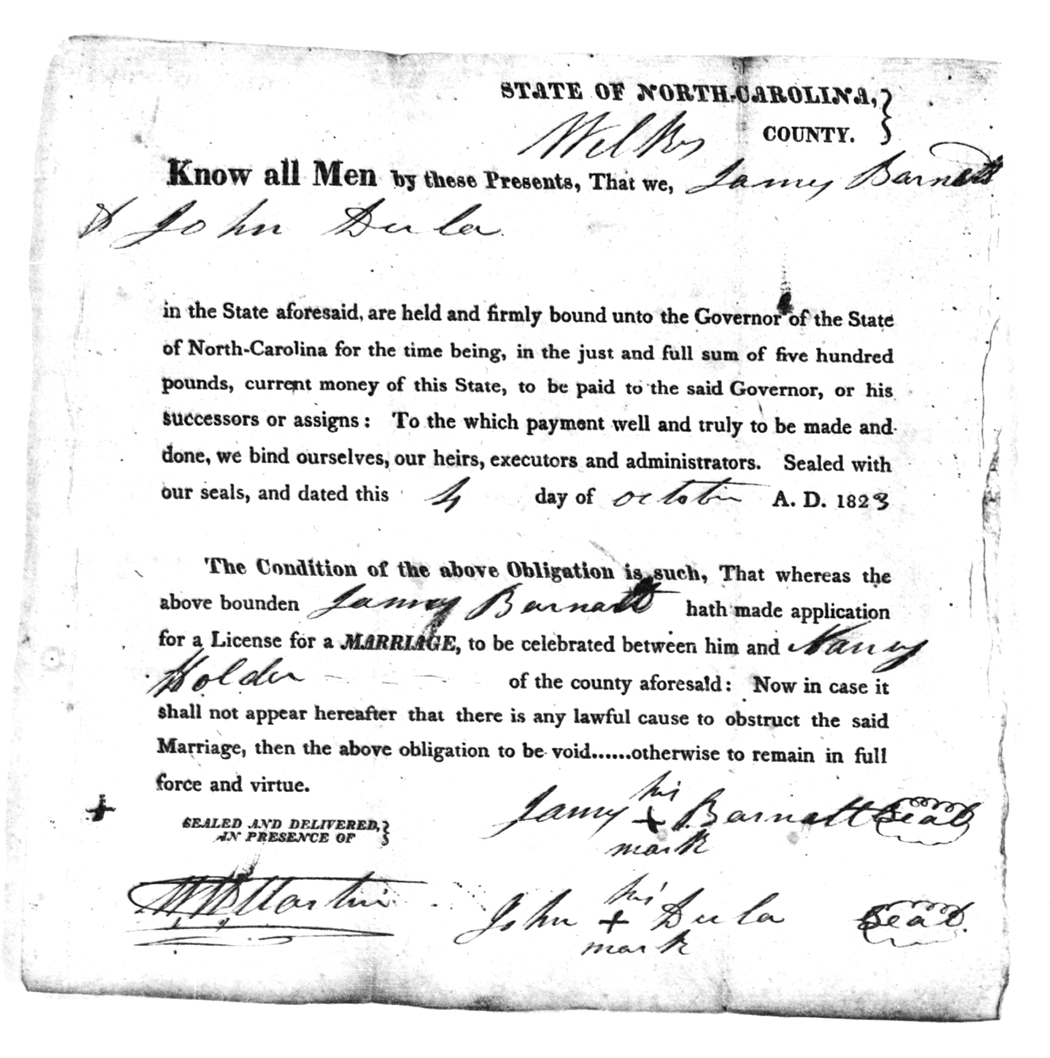 STATE OF NORTH-CAROLINA,
Wilkes COUNTY.
Know all Men by these Presents, That we, James Barnett
& John Dula
in the State aforesaid, are held and firmly bound unto the Governor of the State
of North-Carolina for the time being, in the just and full sum of five hundred
pounds, current money of this State, to be paid to the said Governor, or his
successors or assigns: To the which payment well and truly to be made and
done, we bind ourselves, our heirs, executors and administrators. Sealed with
our seals, and dated this 4 day of october A. D. 1823
The Condition of the above Obligation is such, That whereas the
above bounden James Barnett hath made application
for a License for a MARRIAGE, to be celebrated between him and Nancy
Holder of the county aforesaid: Now in case it
shall not appear hereafter that there is any lawful cause to obstruct the said
Marriage, then the above obligation to be void......otherwise to remain in full
force and virtue.
SEALED AND DELIVERED,
IN PRESENCE OF
his
James + Barnett Seal
mark
Martin
his
John + Dula Seal
mark